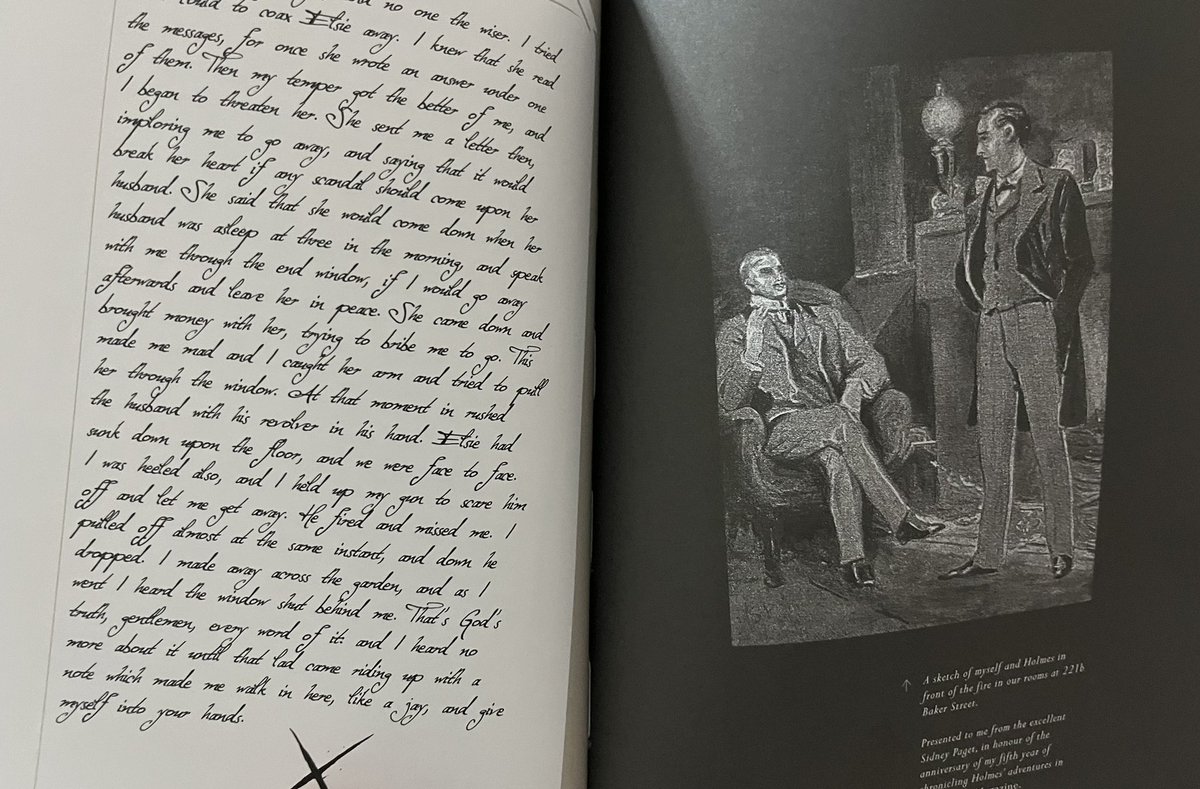 no one the wiser. I tried
could to coax Elsie away. I knew that she read
the messages, for once she wrote an answer under one
of them. Then my temper got the better of me, and
I began to threaten her. She sent me a letter then,
imploring me to go away, and saying that it would
break her heart if any scandal should come upon her
husband. She said that she would come down when her
husband was asleep at three in the morning, and speak
with me through the end window, if I would go away
afterwards and leave her in peace. She came down and
brought money with her, trying to bribe me to go. This
made me mad and I caught her arm and tried to pull
her through the window. At that moment in rushed
the husband with his revolver in his hand. Elsie had
sunk down upon the floor, and we were face to face.
I was heeled also, and I held up my gun to scare him
off and let me get away. He fired and missed me. I
pulled off almost at the same instant, and down he
dropped. I made away across the garden, and as I
went I heard the window shut behind me. That's God's
truth, gentlemen, every word of it: and I heard no
more about it until that lad came riding up with a
note which made me walk in here, like a jay, and give
myself into your hands.
↑ A sketch of myself and Holmes in
front of the fire in our rooms at 221b
Baker Street.
Presented to me from the excellent
Sidney Paget, in honour of the
anniversary of my fifth year of
chronicling Holmes' adventures in